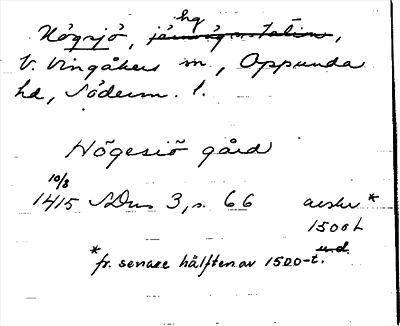 hg
Högsjö, järnvägsstation,
V. Vingåkers sn, Oppunda
hd, Söderm. l.
Högesiö gård
10/8
1415 SDns 3, s. 66 avskr *
1500 t
* fr. senare hälften av 1500-t. u.d.